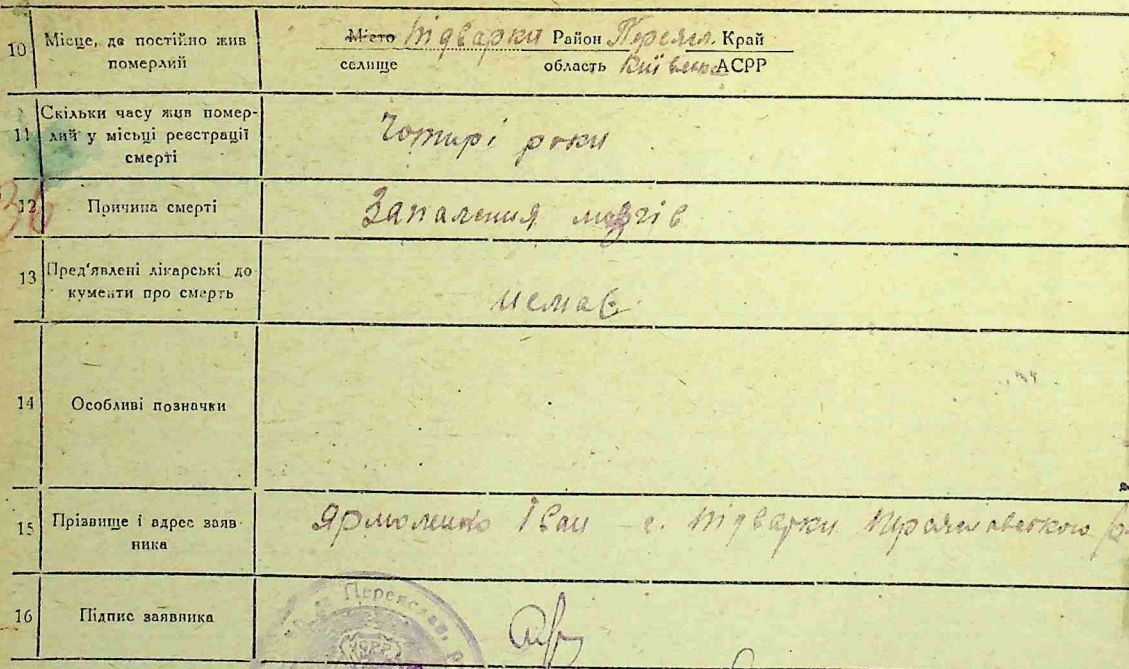 10 Місце, де постійно жив Місто Підварки Район Переясл. Край
померлий селище область Київська АСРР
11 Скільки часу жив помер-
лий у місьці реєстрації Чотирі роки
смерті
12 Причина смерті Запалення мозгів
13 Пред'явлені лікарські до-
кументи про смерть немає
14 Особливі позначки
15 Прізвище і адрес заяв- Ярмоленко Іван с. Підварки
ника
16 Підпис заявника
Переяслав.
УСРР